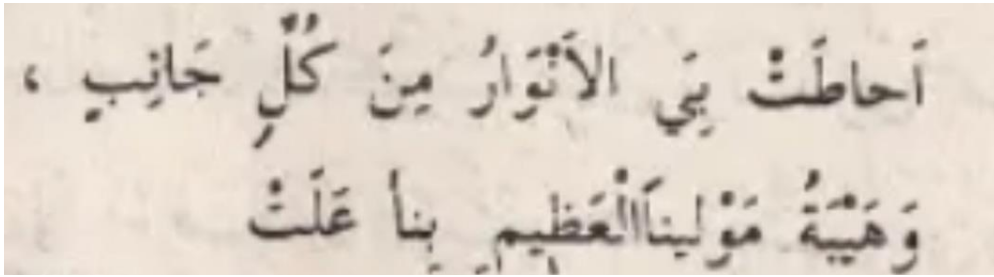 اَحاطَتْ بِيَ الاَنْوَارُ مِنَ كُلِّ جَانِبٍ ،
وَ هَيْبَةُ مَوْلينَاَالْعَظِيمِ بِنا عَلَتْ